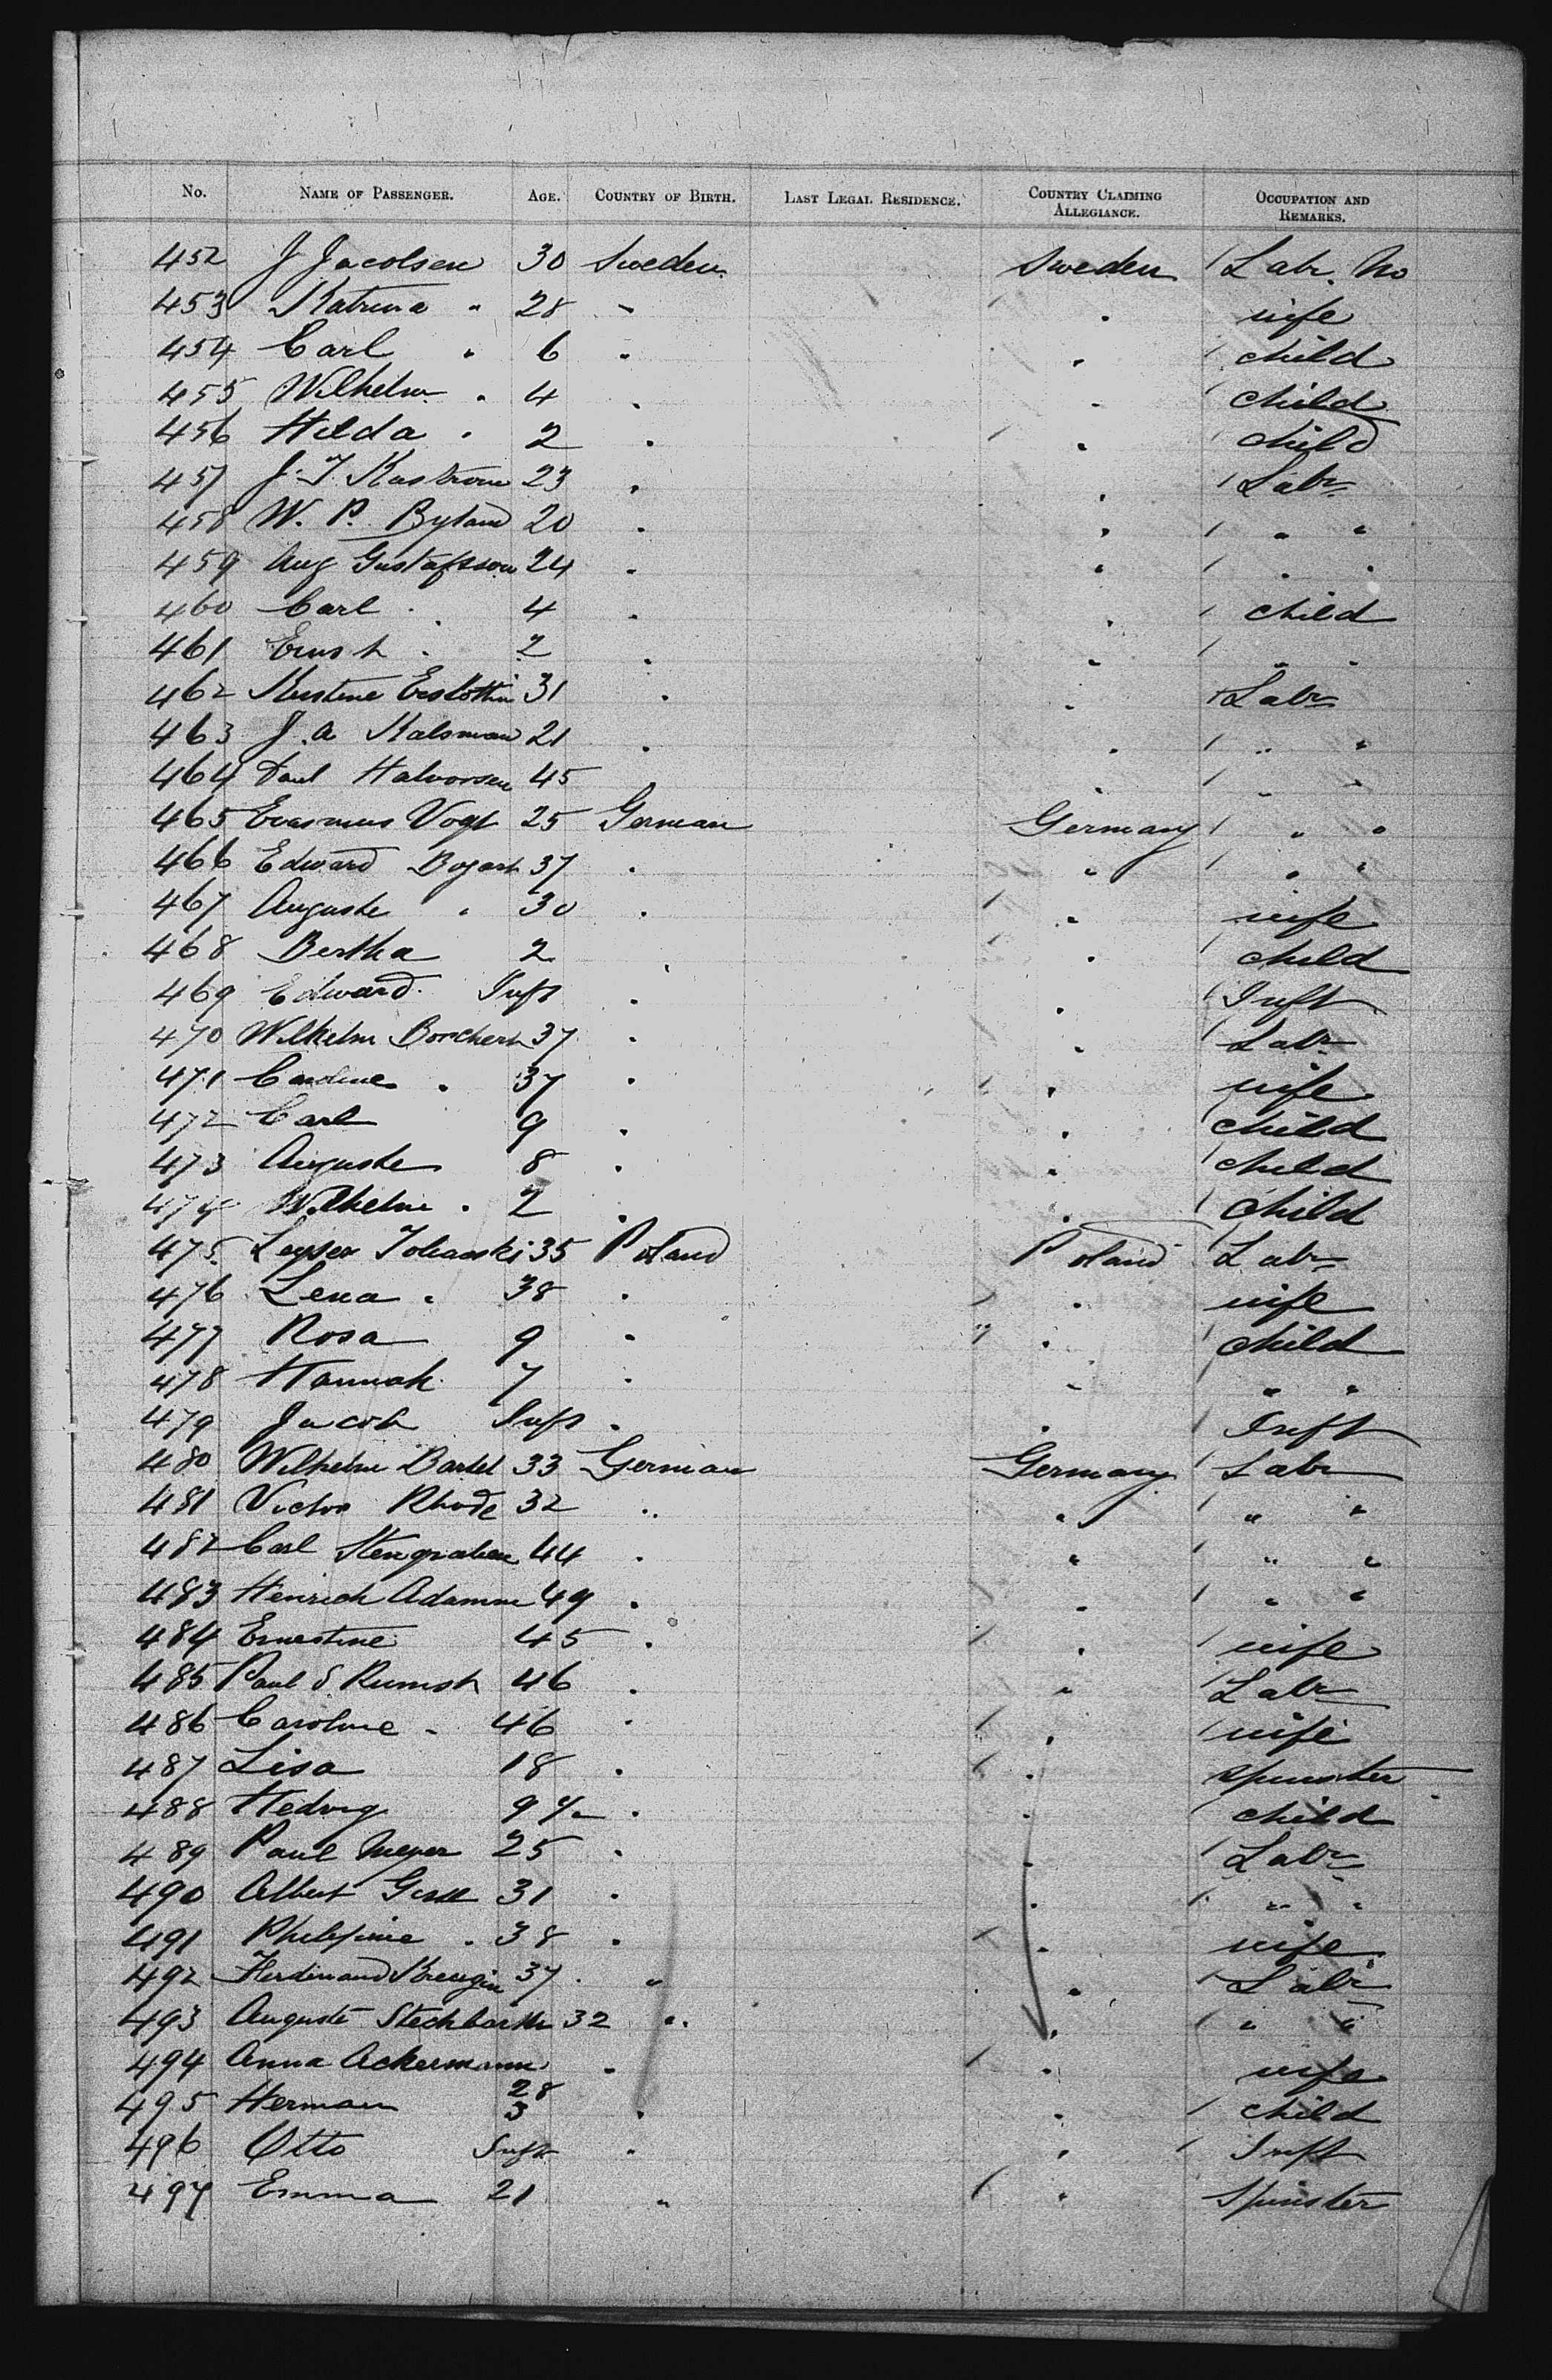 No. NAME OF PASSENGER. AGE. COUNTRY OF BIRTH. LAST LEGAL RESIDENCE. COUNTRY CLAIMING ALLEGIANCE. OCCUPATION AND REMARKS.
452 J Jacolsen 30 Sweden Sweden / Labr. No
453 Katrina " 28 " " wife
454 Carl " 6 " " / child
455 Wilhelm " 4 " " / child
456 Hilda " 2 " " / child
457 J. 23 " " / Labr
458 W. P. Byland 20 " " / " "
459 Aug Gustafsson 24 " " / " "
460 Carl " 4 " " / child
461 Ernst " 2 " " / " "
462 31 " " / Labr
463 J. A Kalsman 21 " " / " "
464 Paul Halvorsen 45 " / " "
465 Erasmus Vogt 25 German Germany / " "
466 Edward Bogart 37 " " / " "
467 Auguste " 30 " / " wife
468 Bertha 2 " " / child
469 Edward Inft " " / Inft
470 Wilhelm Borchert 37 " " / Labr
471 Caroline " 37 " " / wife
472 Carl 9 " " / child
473 Auguste 8 " " / child
474 Wilhelm " 2 " " / child
475 Leyser 35 Poland Poland / Labr
476 Lena " 38 " / " wife
477 Rosa 9 " " / child
478 Hannah 7 " " / " "
479 Jacob Inft " " / Inft
480 Wilhelm Bartel 33 German Germany / Labr
481 Victor Rhode 32 " " / " "
482 Carl Stengraben 44 " " / " "
483 Henrich Adamm 49 " " / " "
484 Ernestine 45 " / " / wife
485 Paul S Rumsh 46 " " / Labr
486 Caroline " 46 " / " / wife
487 Lisa 18 " / " spinster
488 Hedwig 9 " " / child
489 Paul Meyer 25 " " / Labr
490 Albert 31 " " / " "
491 Philepine " 38 " / " wife
492 Ferdinand 37 " " / Labr
493 Auguste Stechbarth 32 " " / " "
494 Anna Ackermann 28 " / " wife
495 Herman 3 " " / child
496 Otto Inft " " / Inft
497 Emma 21 " / " Spinster